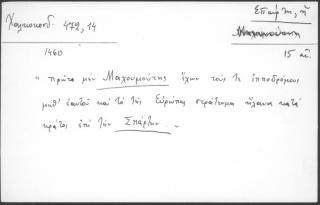 Χαλκοκονδ. 479, 14
Σπάρτη, ἡ
1460
15 αἰ.
" πρῶτα μὲν Μαχουμούτης ἔχων τούς τε ἱπποδρόμους
μεθ' ἑαυτοῦ καὶ τὸ τῆς Εὐρώπης στράτευμα ἤλαυνε κατὰ
κράτος ἐπὶ τὴν Σπάρτην "